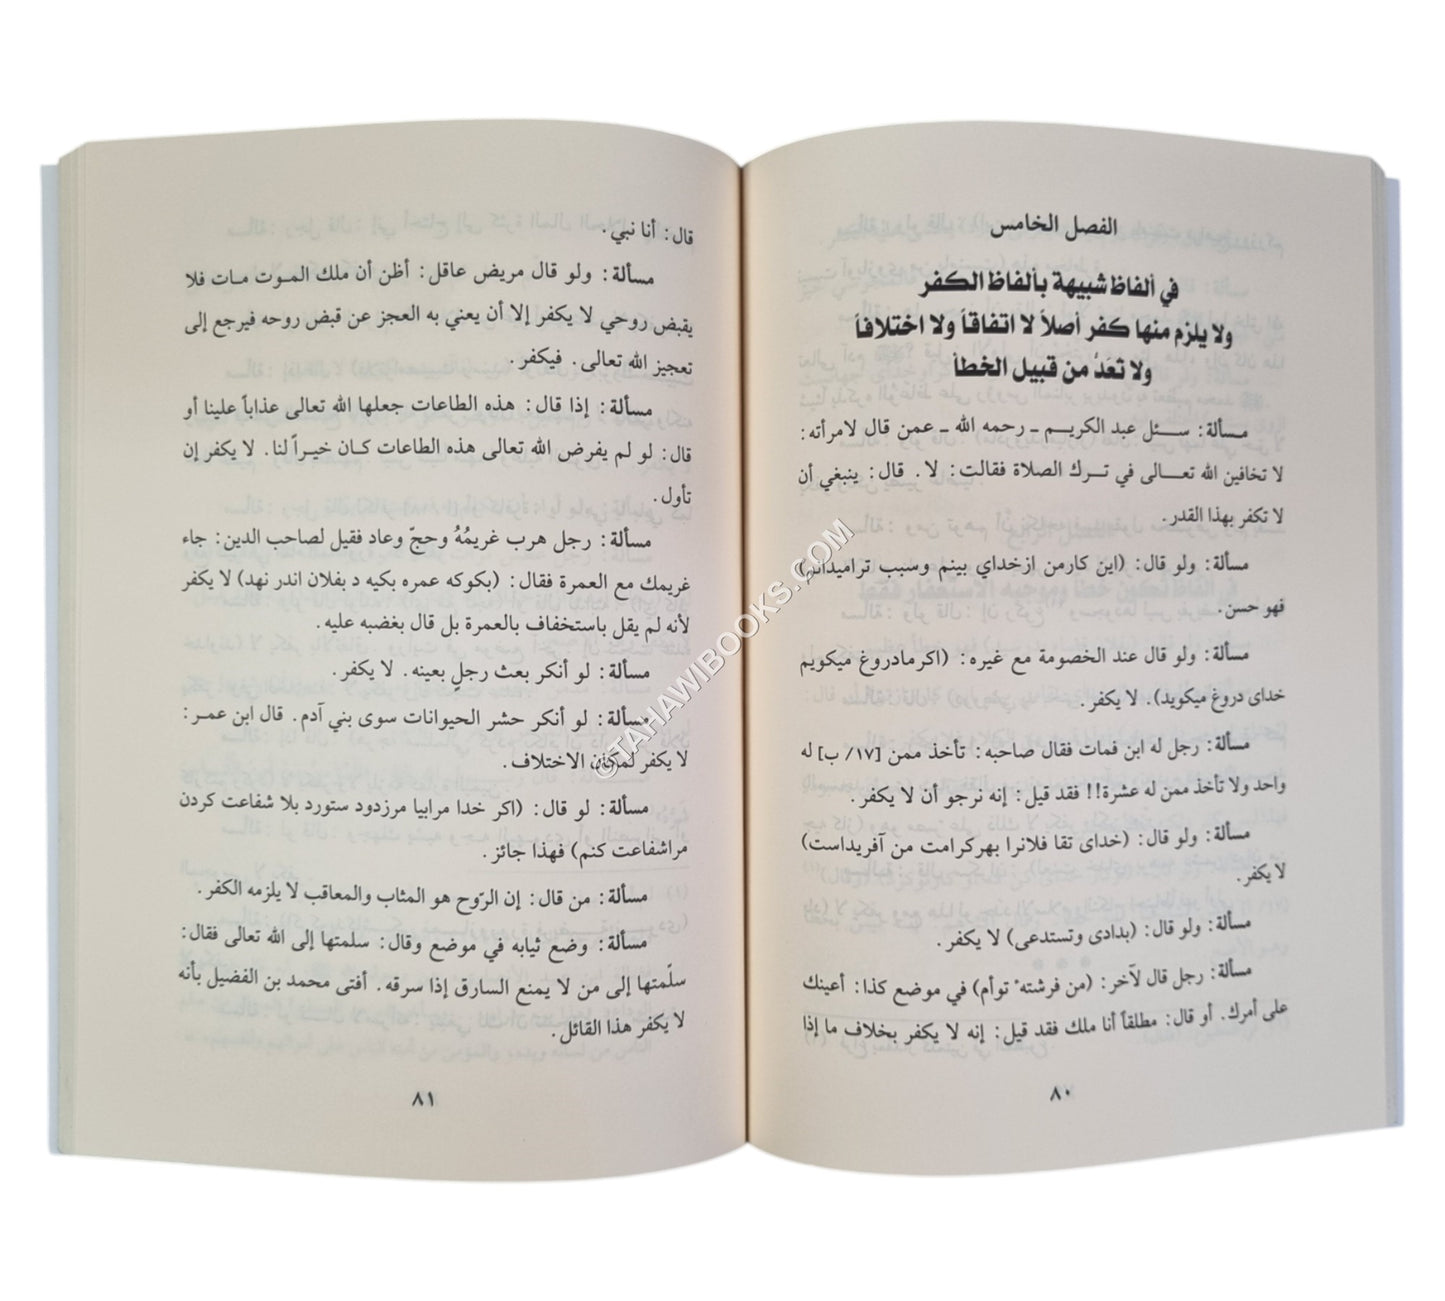 الفصل الخامس
في ألفاظ شبيهة بألفاظ الكفر
ولا يلزم منها كفر أصلاً لا اتفاقاً ولا اختلافاً
ولا تُعَدُّ من قبيل الخطأ
مسألة: سئل عبد الكريم ـ رحمه الله ـ عمن قال لامرأته:
لا تخافين الله تعالى في ترك الصلاة فقالت: لا. قال: ينبغي أن
لا تكفر بهذا القدر.
مسألة: ولو قال: (اين كارمن ازخداي بينم وسبب تراميدانم)
فهو حسن.
مسألة: ولو قال عند الخصومة مع غيره: (اكرمادروغ ميكويم
خداى دروغ ميكويد). لا يكفر.
مسألة: رجل له ابن فمات فقال صاحبه: تأخذ ممن [١٧/ ب] له
واحد ولا تأخذ ممن له عشرة!! فقد قيل: إنه نرجو أن لا يكفر.
مسألة: ولو قال: (خداى تقا فلانرا بهركرامت من آفريداست)
لا يكفر.
مسألة: ولو قال: (بدادى وتستدعى) لا يكفر.
مسألة: رجل قال لآخر: (من فرشتهٔ توأم) في موضع كذا: أعينك
على أمرك. أو قال: مطلقاً أنا ملك فقد قيل: إنه لا يكفر بخلاف ما إذا
٨٠
قال: أنا نبي.
مسألة: ولو قال مريض عاقل: أظن أن ملك الموت مات فلا
يقبض روحي لا يكفر إلا أن يعني به العجز عن قبض روحه فيرجع إلى
تعجيز الله تعالى. فيكفر.
مسألة: إذا قال: هذه الطاعات جعلها الله تعالى عذاباً علينا أو
قال: لو لم يفرض الله تعالى هذه الطاعات كان خيراً لنا. لا يكفر إن
تأول.
مسألة: رجل هرب غريمُهُ وحجّ وعاد فقيل لصاحب الدين: جاء
غريمك مع العمرة فقال: (بكوكه عمره بكيه د بفلان اندر نهد) لا يكفر
لأنه لم يقل باستخفاف بالعمرة بل قال بغضبه عليه.
مسألة: لو أنكر بعث رجلٍ بعينه. لا يكفر.
مسألة: لو أنكر حشر الحيوانات سوى بني آدم. قال ابن عمر:
لا يكفر لمكان الاختلاف.
مسألة: لو قال: (اكر خدا مرابيا مرزدود ستورد بلا شفاعت كردن
مراشفاعت كنم) فهذا جائز.
مسألة: من قال: إن الرّوح هو المثاب والمعاقب لا يلزمه الكفر.
مسألة: وضع ثيابه في موضع وقال: سلمتها إلى الله تعالى فقال:
سلّمتها إلى من لا يمنع السارق إذا سرقه. أفتى محمد بن الفضيل بأنه
لا يكفر هذا القائل.
٨١
©TAHAWIBOOKS.COM